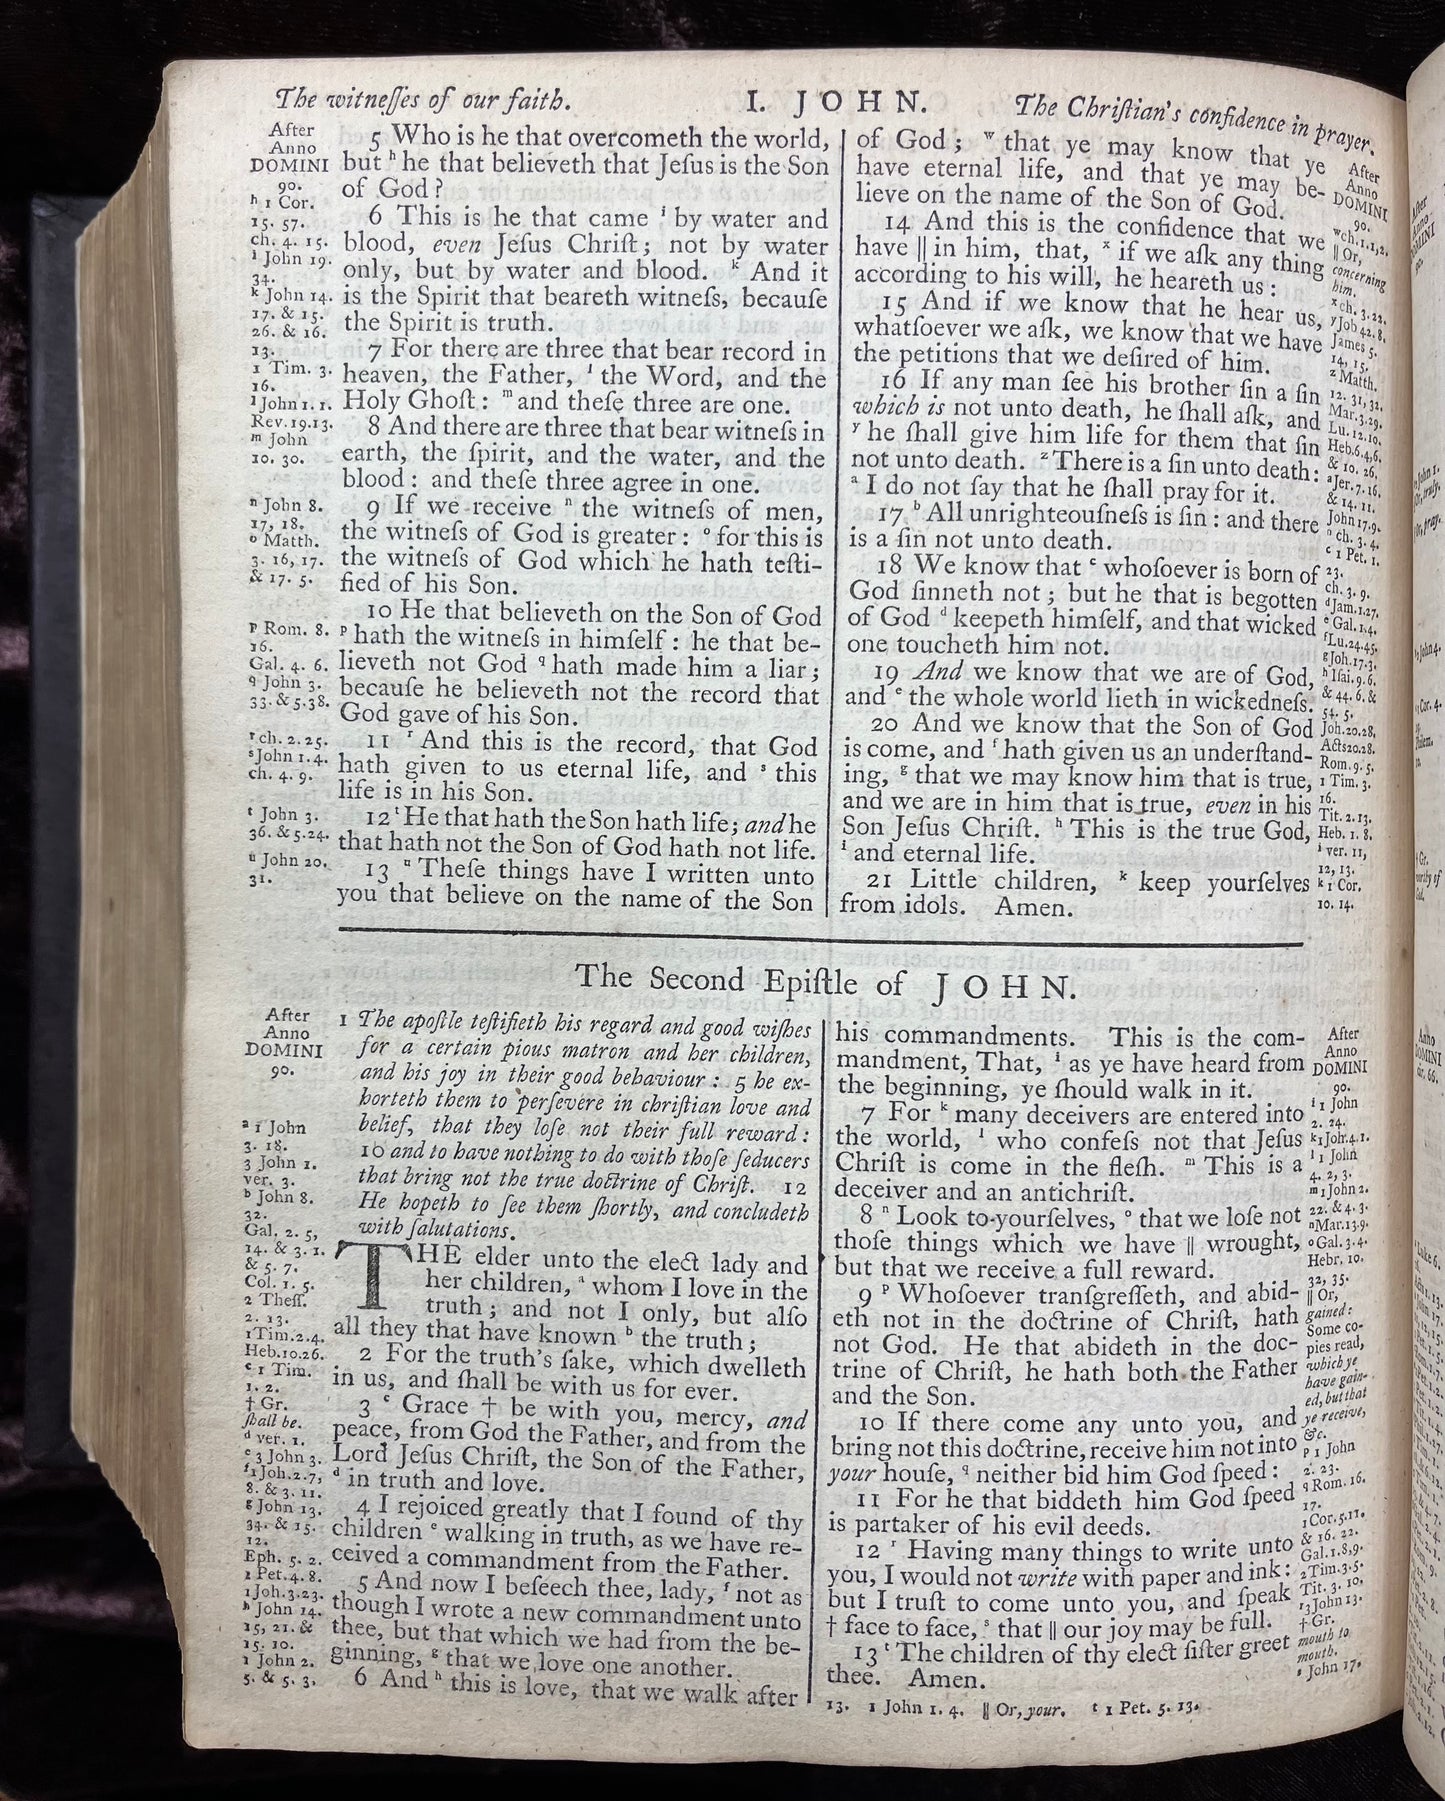 The witneſſes of our faith.
I. JOHN.
The Chriſtian's confidence in prayer.
After
Anno
DOMINI
90.
h 1 Cor.
15. 57.
ch. 4. 15.
i John 19.
34.
k John 14.
17. & 15.
26. & 16.
13.
1 Tim. 3.
16.
l John 1. 1.
Rev. 19.13.
m John
10. 30.
n John 8.
17, 18.
o Matth.
3. 16, 17.
& 17. 5.
p Rom. 8.
16.
Gal. 4. 6.
q John 3.
33. & 5.38.
r ch. 2. 25.
s John 1. 4.
ch. 4. 9.
t John 3.
36. & 5.24.
u John 20.
31.
5 Who is he that overcometh the world,
but h he that believeth that Jeſus is the Son
of God?
6 This is he that came i by water and
blood, even Jeſus Chriſt; not by water
only, but by water and blood. k And it
is the Spirit that beareth witneſs, becauſe
the Spirit is truth.
7 For there are three that bear record in
heaven, the Father, l the Word, and the
Holy Ghoſt: m and theſe three are one.
8 And there are three that bear witneſs in
earth, the ſpirit, and the water, and the
blood: and theſe three agree in one.
9 If we receive n the witneſs of men,
the witneſs of God is greater: o for this is
the witneſs of God which he hath teſti-
fied of his Son.
10 He that believeth on the Son of God
p hath the witneſs in himſelf: he that be-
lieveth not God q hath made him a liar;
becauſe he believeth not the record that
God gave of his Son.
11 r And this is the record, that God
hath given to us eternal life, and s this
life is in his Son.
12 t He that hath the Son hath life; and he
that hath not the Son of God hath not life.
13 u Theſe things have I written unto
you that believe on the name of the Son
of God; w that ye may know that ye
have eternal life, and that ye may be-
lieve on the name of the Son of God.
14 And this is the confidence that we
have || in him, that, x if we aſk any thing
according to his will, he heareth us:
15 And if we know that he hear us,
whatſoever we aſk, we know that we have
the petitions that we deſired of him.
16 If any man ſee his brother ſin a ſin
which is not unto death, he ſhall aſk, and
y he ſhall give him life for them that ſin
not unto death. z There is a ſin unto death:
a I do not ſay that he ſhall pray for it.
17 b All unrighteouſneſs is ſin: and there
is a ſin not unto death.
18 We know that c whoſoever is born of
God ſinneth not; but he that is begotten
of God d keepeth himſelf, and that wicked
one toucheth him not.
19 And we know that we are of God,
and e the whole world lieth in wickedneſs.
20 And we know that the Son of God
is come, and f hath given us an underſtand-
ing, g that we may know him that is true,
and we are in him that is true, even in his
Son Jeſus Chriſt. h This is the true God,
i and eternal life.
21 Little children, k keep yourſelves
from idols. Amen.
After
Anno
DOMINI
90.
w ch. 1. 1, 2.
|| Or,
concerning
him.
x ch. 3. 22.
y Job 42. 8.
James 5.
14, 15.
z Matth.
12. 31, 32.
Mar. 3. 29.
Lu. 12. 10.
Heb. 6. 4, 6.
& 10. 26.
a Jer. 7. 16.
& 14. 11.
John 17. 9.
ch. 3. 4.
c 1 Pet. 1.
23.
ch. 3. 9.
d Jam. 1. 27.
e Gal. 1. 4.
f Lu. 24. 45.
g Joh. 17. 3.
h Iſai. 9. 6.
& 44. 6. &
54. 5.
Joh. 20. 28.
Acts 20. 28.
Rom. 9. 5.
1 Tim. 3.
16.
Tit. 2. 13.
Heb. 1. 8.
i ver. 11,
12, 13.
k 1 Cor.
10. 14.
The Second Epiſtle of JOHN.
After
Anno
DOMINI
90.
a 1 John
3. 18.
3 John 1.
ver. 3.
b John 8.
32.
Gal. 2. 5,
14. & 3. 1.
& 5. 7.
Col. 1. 5.
2 Theſſ.
2. 13.
1 Tim. 2. 4.
Heb. 10. 26.
c 1 Tim.
1. 2.
† Gr.
ſhall be.
d ver. 1.
e 3 John 3.
f 1 Joh. 2. 7,
8. & 3. 11.
g John 13.
34. & 15.
12.
Eph. 5. 2.
1 Pet. 4. 8.
1 Joh. 3. 23.
h John 14.
15, 21. &
15. 10.
1 John 2.
5. & 5. 3.
1 The apoſtle teſtifieth his regard and good wiſhes
for a certain pious matron and her children,
and his joy in their good behaviour: 5 he ex-
horteth them to perſevere in chriſtian love and
belief, that they loſe not their full reward:
10 and to have nothing to do with thoſe ſeducers
that bring not the true doctrine of Chriſt. 12
He hopeth to ſee them ſhortly, and concludeth
with ſalutations.
THE elder unto the elect lady and
her children, a whom I love in the
truth; and not I only, but alſo
all they that have known b the truth;
2 For the truth's ſake, which dwelleth
in us, and ſhall be with us for ever.
3 c Grace † be with you, mercy, and
peace, from God the Father, and from the
Lord Jeſus Chriſt, the Son of the Father,
d in truth and love.
4 I rejoiced greatly that I found of thy
children e walking in truth, as we have re-
ceived a commandment from the Father.
5 And now I beſeech thee, lady, f not as
though I wrote a new commandment unto
thee, but that which we had from the be-
ginning, g that we love one another.
6 And h this is love, that we walk after
his commandments. This is the com-
mandment, That, i as ye have heard from
the beginning, ye ſhould walk in it.
7 For k many deceivers are entered into
the world, l who confeſs not that Jeſus
Chriſt is come in the fleſh. m This is a
deceiver and an antichriſt.
8 n Look to yourſelves, o that we loſe not
thoſe things which we have || wrought,
but that we receive a full reward.
9 p Whoſoever tranſgreſſeth, and abid-
eth not in the doctrine of Chriſt, hath
not God. He that abideth in the doc-
trine of Chriſt, he hath both the Father
and the Son.
10 If there come any unto you, and
bring not this doctrine, receive him not into
your houſe, q neither bid him God ſpeed:
11 For he that biddeth him God ſpeed
is partaker of his evil deeds.
12 r Having many things to write unto
you, I would not write with paper and ink:
but I truſt to come unto you, and ſpeak
† face to face, s that || our joy may be full.
13 t The children of thy elect ſiſter greet
thee. Amen.
After
Anno
DOMINI
90.
i 1 John
2. 24.
k 1 Joh. 4. 1.
l 1 John
4. 2, 3.
m 1 John 2.
22. & 4. 3.
n Mar. 13. 9.
o Gal. 3. 4.
Hebr. 10.
32, 35.
|| Or,
gained:
Some co-
pies read,
which ye
have gain-
ed, but that
ye receive,
&c.
p 1 John
2. 23.
q Rom. 16.
17.
1 Cor. 5. 11.
& 16. 22.
Gal. 1. 8, 9.
2 Tim. 3. 5.
Tit. 3. 10.
r 3 John 13.
† Gr.
mouth to
mouth.
s John 17.
13. 1 John 1. 4. || Or, your. t 1 Pet. 5. 13.